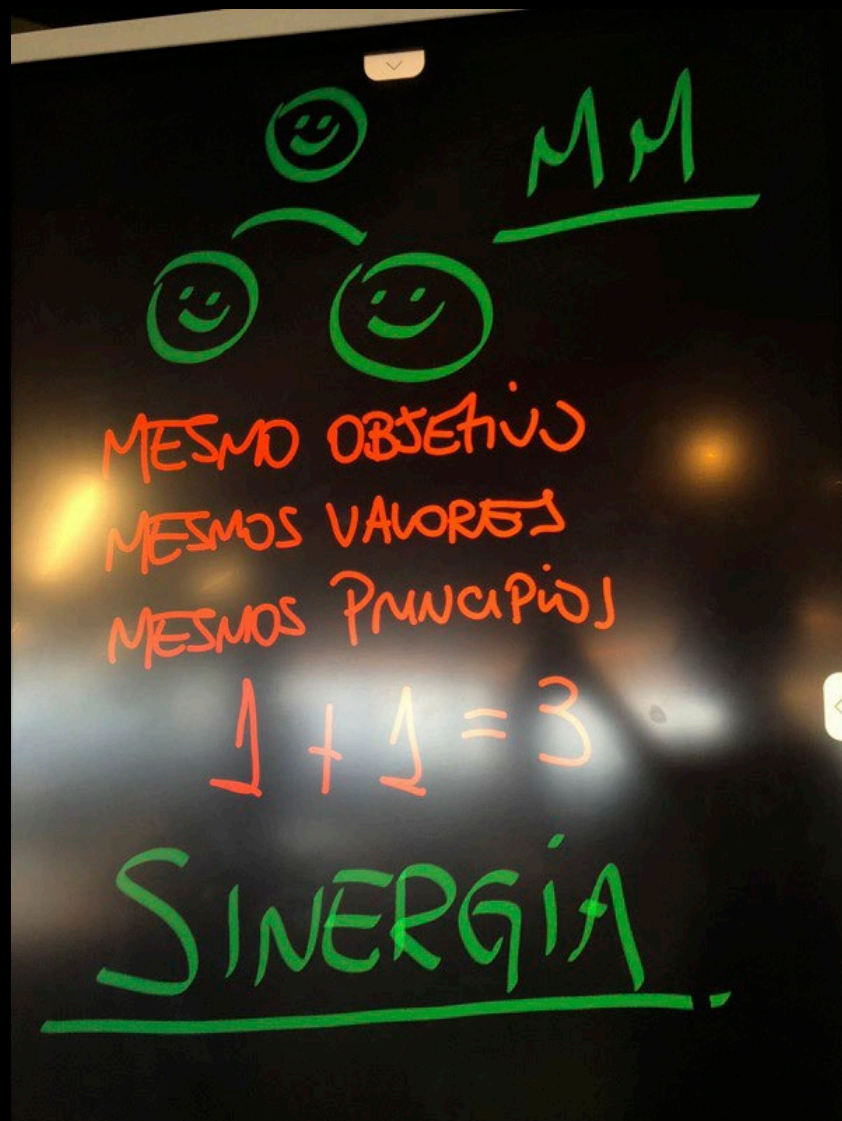 MM
MESMO OBJETIVO
MESMOS VALORES
MESMOS PRINCIPIOS
1 + 1 = 3
SINERGIA